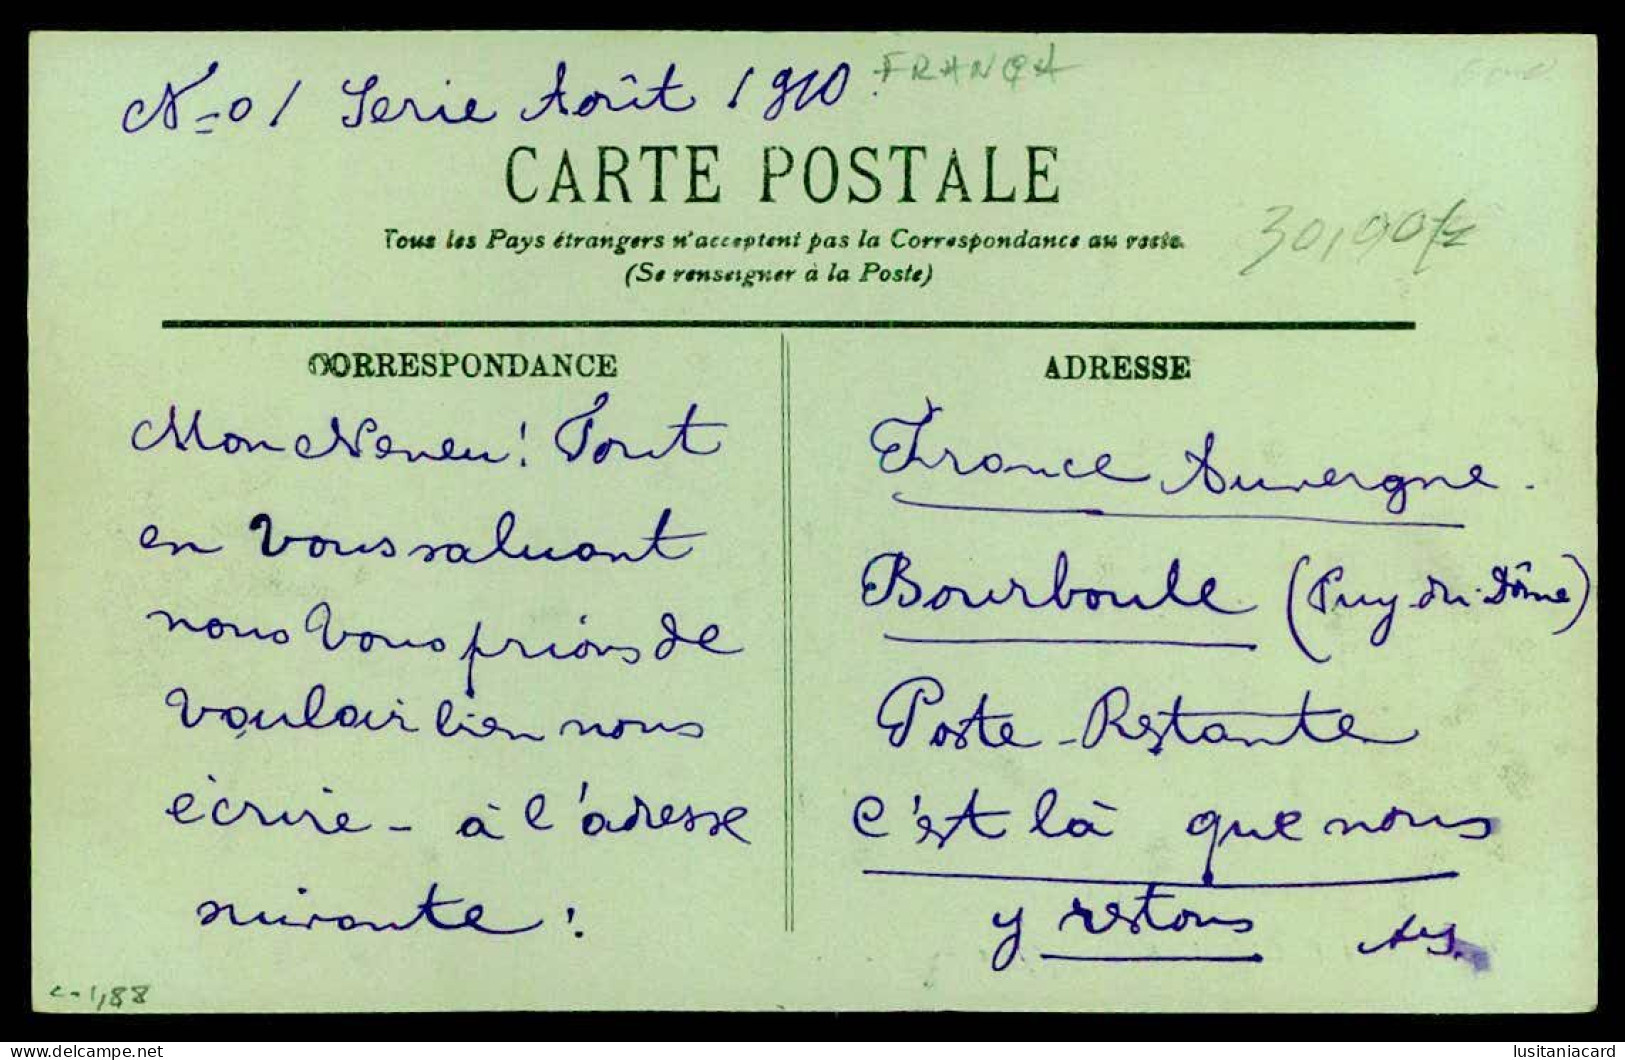 No 1 Serie Août 1910. FRANÇA
CARTE POSTALE
Tous les Pays étrangers n'acceptent pas la Correspondance au recto.
(Se renseigner à la Poste)
30,00
CORRESPONDANCE
Mon Neveu! Tout
en Vous saluant
nous Vous prions de
Vouloir bien nous
écrire - à l'adresse
suivante:
ADRESSE
France Auvergne.
Bourboule (Puy-du-Dôme)
Poste-Restante
c'est là que nous
y restons
c-1,88
lusitaniacard